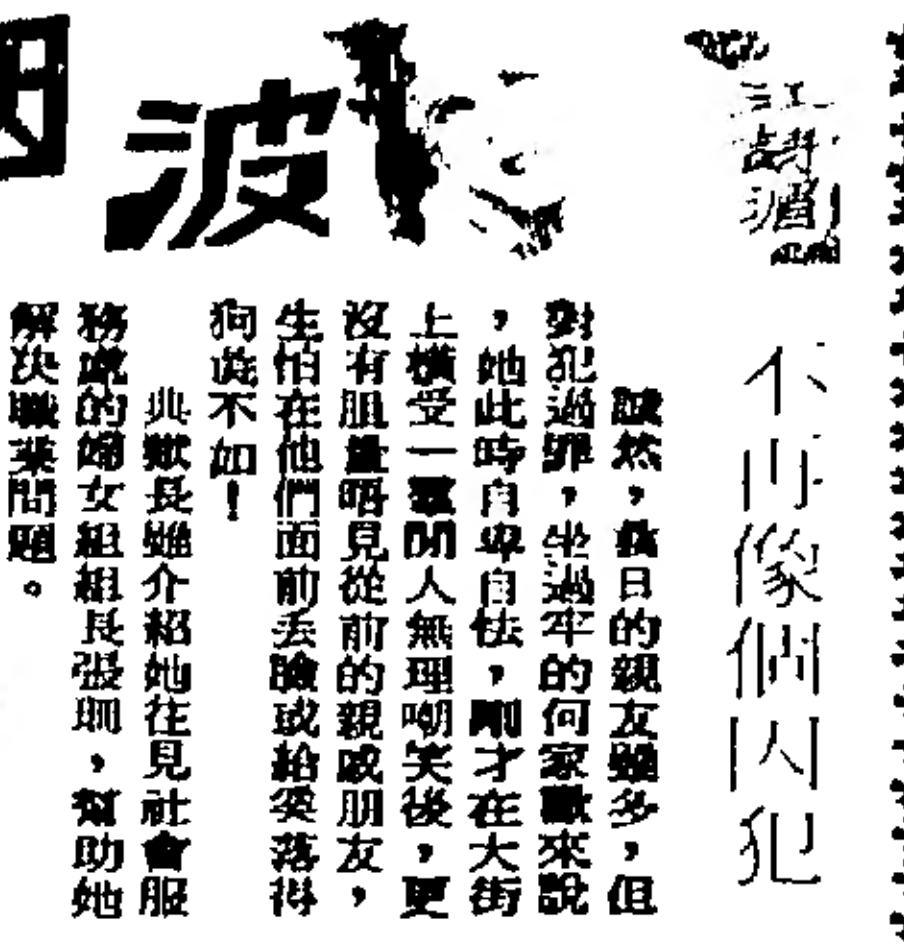 波
不再像個囚犯
誠然，舊日的親友雖多，但
對犯過罪，坐過牢的何家歡來說
，她此時自卑自怯，剛才在大街
上橫受一羣閒人無理嘲笑後，更
沒有胆量晤見從前的親戚朋友，
生怕在他們面前丢臉或給奚落得
狗彘不如！
典獄長雖介紹她往見社會服
務處的婦女組組長張珊，幫助她
解决職業問題。